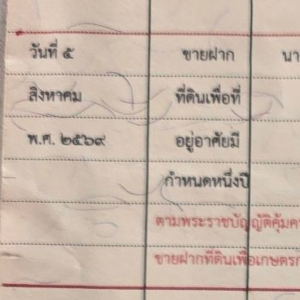 วันที่ ๕ ขายฝาก นา
สิงหาคม ที่ดินเพื่อที่
พ.ศ. ๒๕๖๙ อยู่อาศัยมี
กำหนดหนึ่งปี
ตามพระราชบัญญัติคุ้มคร
ขายฝากที่ดินเพื่อเกษตรก